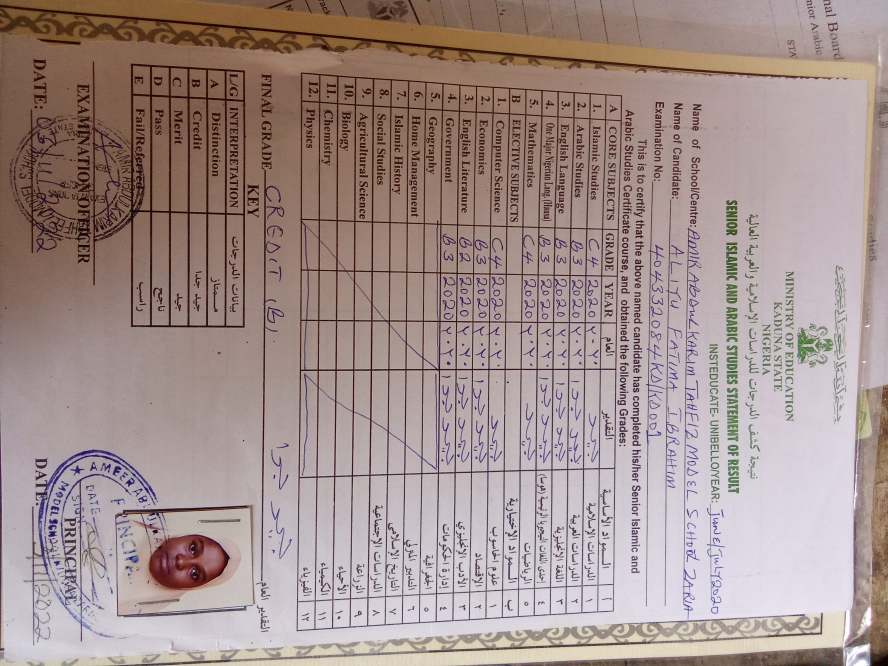 MINISTRY OF EDUCATION
KADUNA STATE
NIGERIA
نتيجة كشف الدرجات للدراسات الإسلامية والعربية العالية
SENIOR ISLAMIC AND ARABIC STUDIES STATEMENT OF RESULT
INSTEDUCATE- UNIBELLO/YEAR: JUNE/JULY 2020
Name of School/Centre: AMIR ABDULKARIM TAHFIZ MODEL SCHOOL ZARIA
Name of Candidate: ALIYU FATIMA IBRAHIM
Examination No: 404332084KD/KD009
This is to certify that the above named candidate has completed his/her Senior Islamic and
Arabic Studies Certificate course, and obtained the following Grades:
A CORE SUBJECTS GRADE YEAR العام التقدير المواد الأساسية أ
1. Islamic Studies C4 2020 ٢٠٢٠ جيد الدراسات الإسلامية ١
2. Arabic Studies B3 2020 ٢٠٢٠ جيد جدا الدراسات العربية ٢
3. English Language B3 2020 ٢٠٢٠ جيد جدا اللغة الإنجليزية ٣
4. One Major Nigerian Lang (Hausa) B3 2020 ٢٠٢٠ جيد جدا إحدى اللغات النيجيريا الرئيسية (هوسا) ٤
5. Mathematics C4 2020 ٢٠٢٠ جيد الرياضيات ٥
B ELECTIVE SUBJECTS المواد الإختيارية ب
1. Computer Science C4 2020 ٢٠٢٠ جيد علوم الحاسوب ١
2. Economics B3 2020 ٢٠٢٠ جيد جدا الاقتصاد ٢
3. English Literature B2 2020 ٢٠٢٠ جيد جدا الأدب الإنجليزي ٣
4. Government B3 2020 ٢٠٢٠ جيد جدا إدارة الحكومات ٤
5. Geography الجغرافية ٥
6. Home Management التدبير المنزلي ٦
7. Islamic History التاريخ الإسلامي ٧
8. Social Studies الدراسات الإجتماعية ٨
9. Agricultural Science الزراعة ٩
10. Biology الأحياء ١٠
11. Chemistry الكيمياء ١١
12. Physics الفيزياء ١٢
FINAL GRADE CREDIT (B) جيد جدا التقدير العام
KEY
L/G INTERPRETATION بيانات الدرجات
A Distinction ممتاز
B Credit جيد جدا
C Merit جيد
D Pass ناجح
E Fail/Referred راسب
EXAMINATION OFFICER
PRINCIPAL
DATE:
DATE:
AMEER AB
PRINCIPAL
DATE
SIGN